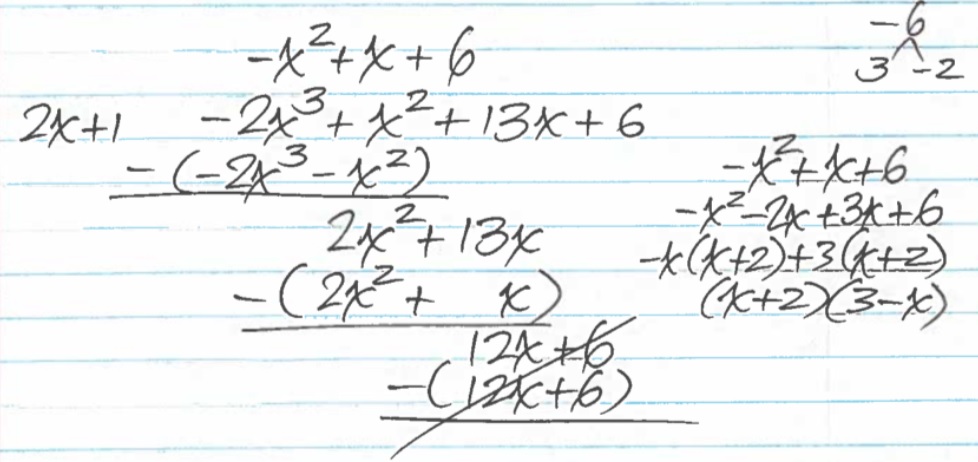 -x²+x+6
2x+1 -2x³+x²+13x+6
-(-2x³-x²)
2x²+13x
-(2x²+ x)
12x+6
-(12x+6)
-6
3 -2
-x²+x+6
-x²-2x+3x+6
-x(x+2)+3(x+2)
(x+2)(3-x)